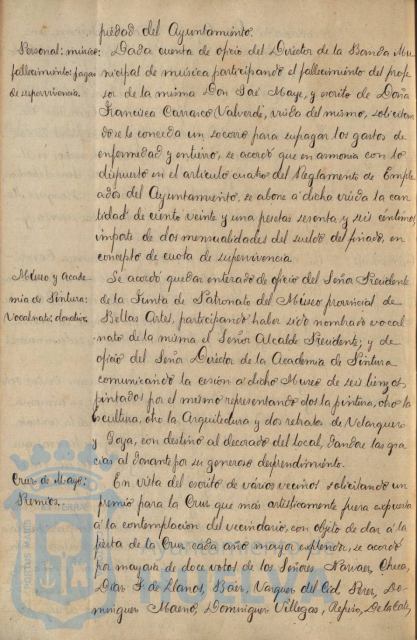 piedad del Ayuntamiento.
Personal: músico:
fallecimiento: pagas
de supervivencia.
Dada cuenta de oficio del Director de la Banda Mu-
nicipal de música participando el fallecimiento del profe-
sor de la misma Don José Maye, y escrito de Doña
Francisca Carrasco Valverde, viuda del mismo, solicitan-
dose le conceda un socorro para sufragar los gastos de
enfermedad y entierro, se acordó que en armonía con lo
dispuesto en el artículo cuatro del Reglamento de Emple-
ados del Ayuntamiento, se abone a dicha viuda la can-
tidad de ciento veinte y una pesetas sesenta y seis centimos,
importe de dos mensualidades del sueldo del finado, en
concepto de cuota de supervivencia.
Museo y Acade-
mia de Pintura:
Vocal nato: donativo.
Se acordó quedar enterado de oficio del Señor Presidente
de la Junta de Patronato del Museo provincial de
Bellas Artes, participando haber sido nombrado vocal
nato de la misma el Señor Alcalde Presidente; y de
oficio del Señor Director de la Academia de Pintura
comunicando la cesión a dicho Museo de seis lienzos
pintados por el mismo representando dos la pintura, otro la
escultura, otro la Arquitectura y dos retratos de Velazquez
y Goya, con destino al decorado del local, dandose las gra-
cias al donante por su generoso desprendimiento.
Cruz de Mayo:
Premios.
En vista del escrito de varios vecinos solicitando un
premio para la Cruz que más artísticamente fuera expuesta
a la contemplación del vecindario, con objeto de dar a la
fiesta de la Cruz cada año mayor esplendor, se acordó
por mayoría de doce votos de los Señores Narvaez, Checa,
Díaz F. de Llanos, Báez, Vazquez del Cid, Pérez, Do-
minguez Maeno, Dominguez Villegas, Rofino, De la Cal-